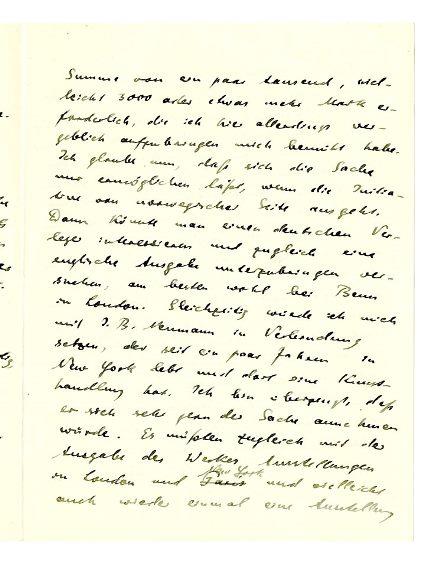 Summe von ein paar tausend, viel-
leicht 3000 oder etwas mehr Mark er-
forderlich, die ich hier allerdings ver-
geblich aufzubringen mich bemüht habe.
Ich glaube nun, daß sich die Sache
nur ermöglichen läßt, wenn die Initia-
tive von norwegischer Seite ausgeht.
Dann könnte man einen deutschen Ver-
leger interessieren und zugleich eine
englische Ausgabe unterzubringen ver-
suchen, am besten wohl bei Benn
in London. Gleichzeitig würde ich mich
mit J. B. Neumann in Verbindung
setzen, der seit ein paar Jahren in
New York lebt und dort eine Kunst-
handlung hat. Ich bin überzeugt, daß
er sich sehr gern der Sache annehmen
würde. Es müßten zugleich mit der
Ausgabe des Werkes Ausstellungen
in London und Paris New York und vielleicht
auch wieder einmal eine Ausstellung